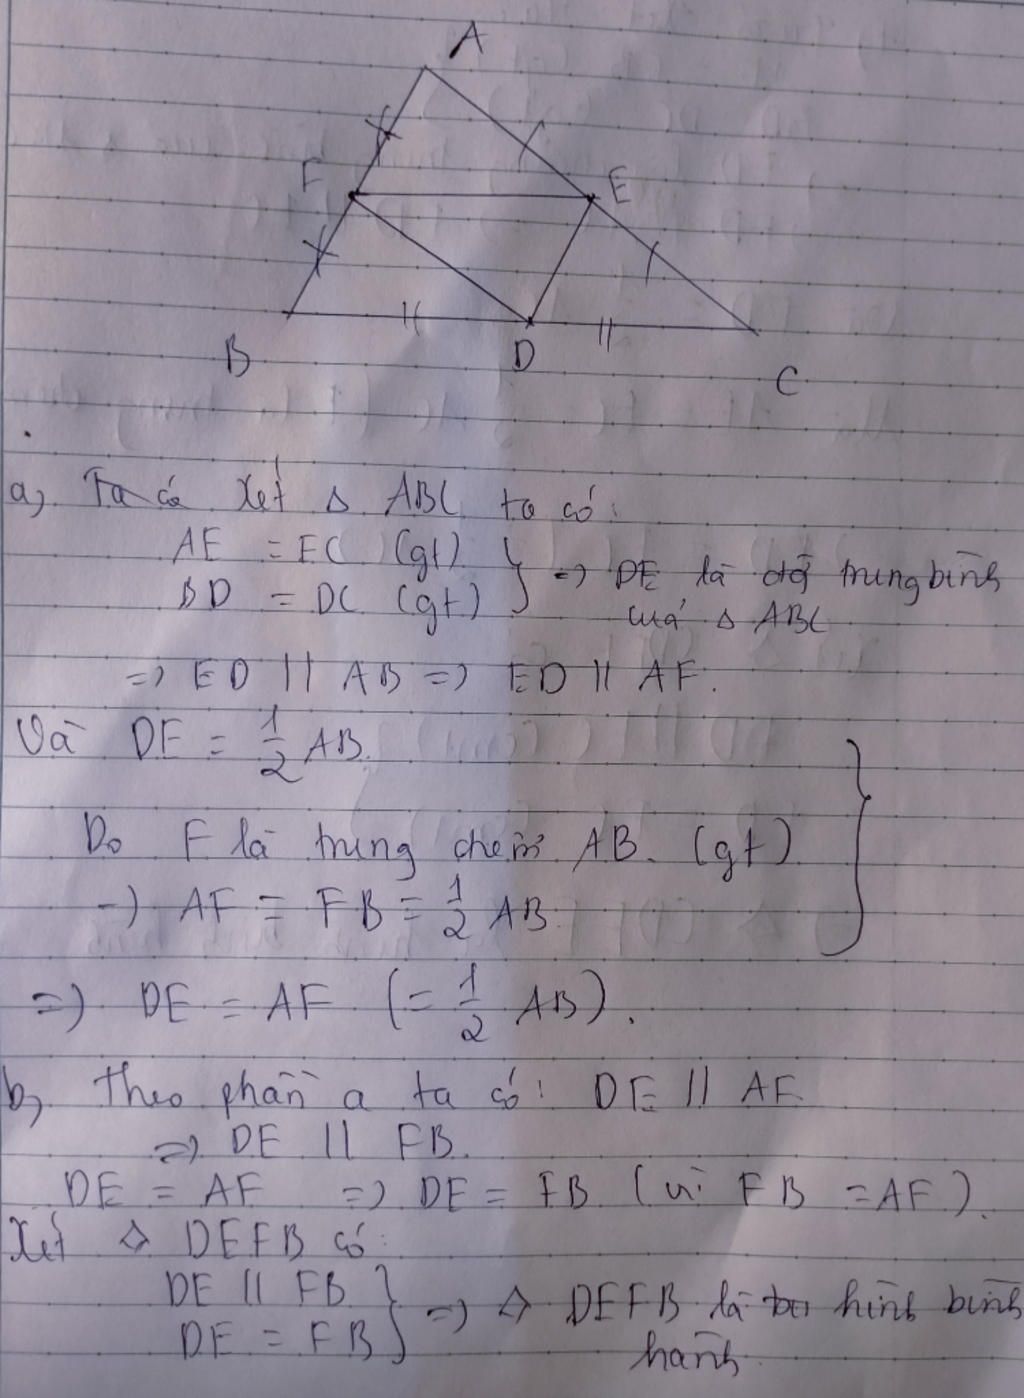 A
F
E
B
D
C
a, Ta có Xét Δ ABC ta có:
AE = EC (gt)
BD = DC (gt) } => DE là đg trung bình
của Δ ABC
=> ED // AB => ED // AF.
Và DE = 1/2 AB.
Do F là trung điểm AB. (gt)
=> AF = FB = 1/2 AB
=> DE = AF (= 1/2 AB).
b, Theo phần a ta có: DE // AF
=> DE // FB.
DE = AF => DE = FB (vì FB = AF).
Xét ◇ DEFB có:
DE // FB
DE = FB } => ◇ DEFB là hình bình
hành.